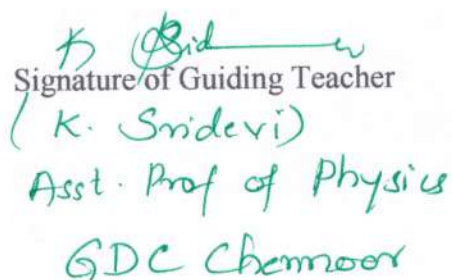 Signature of Guiding Teacher
(K. Sridevi)
Asst. Prof of Physics
GDC Chennoor